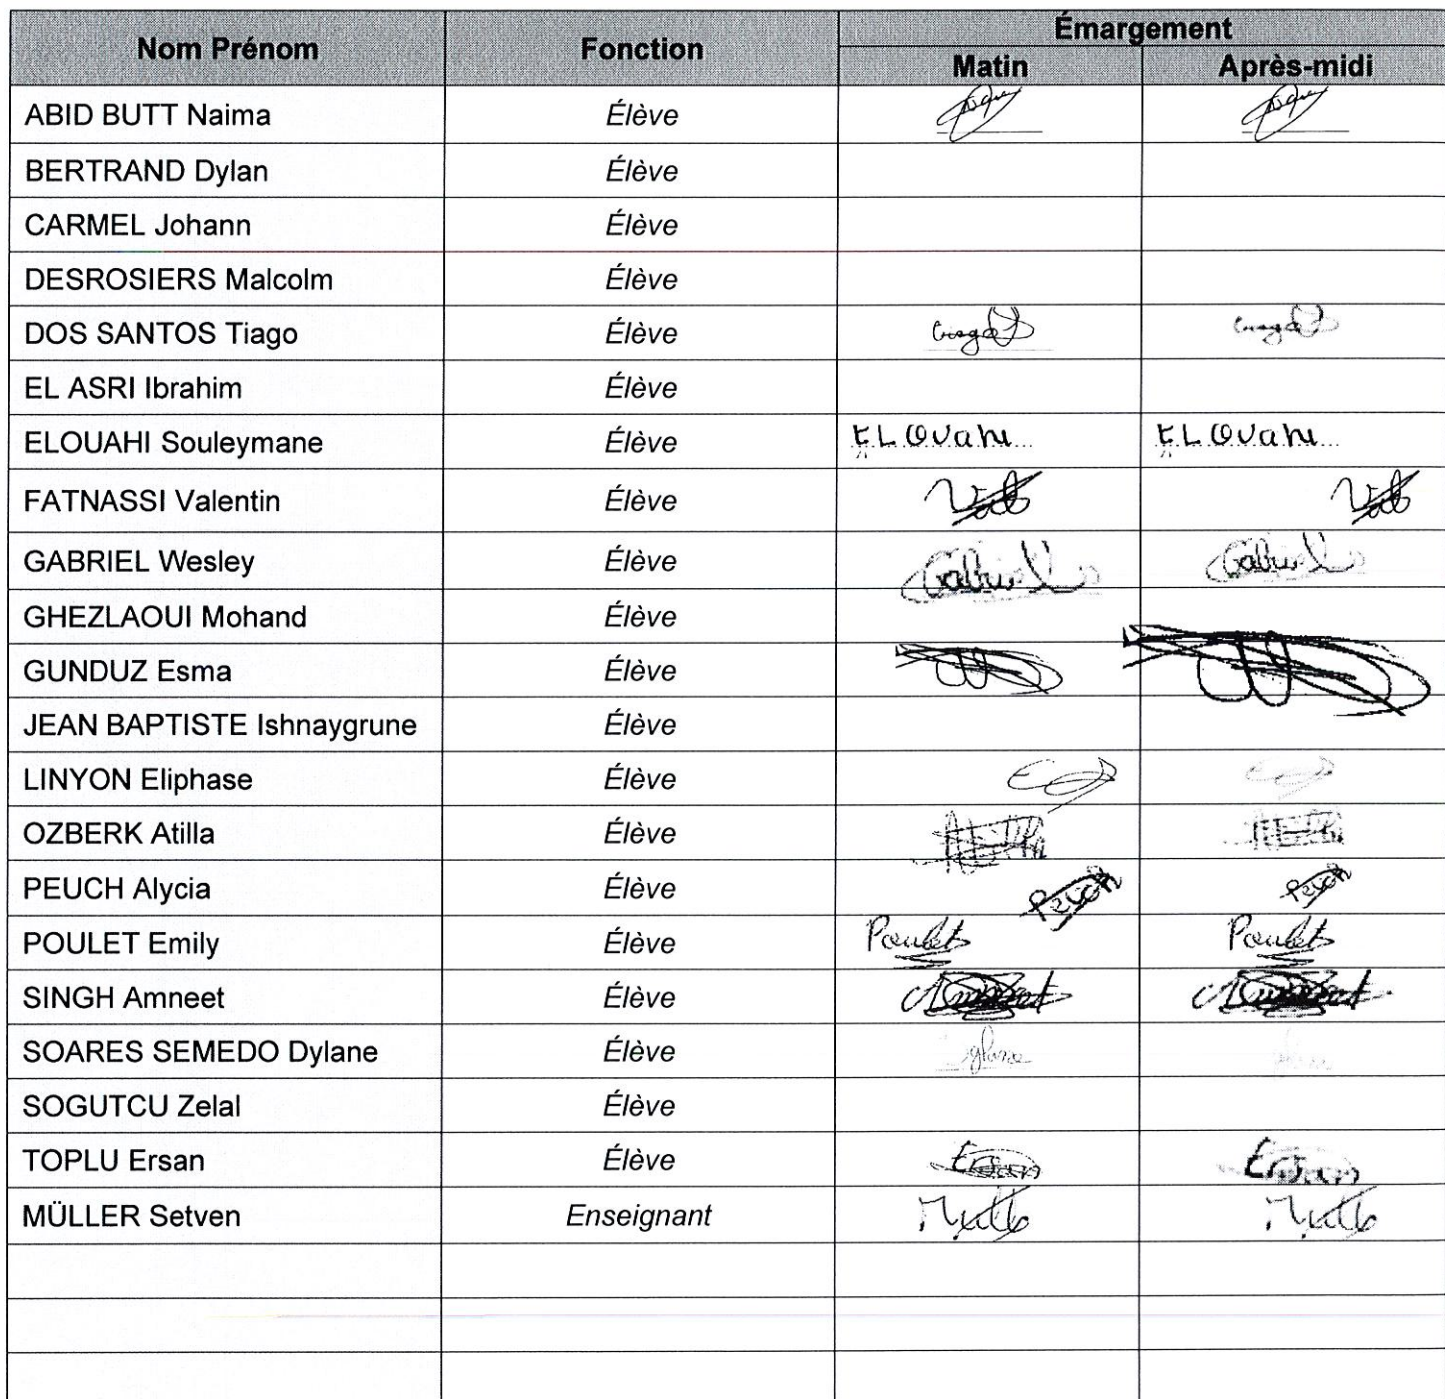 Nom Prénom Fonction Émargement
Matin Après-midi
ABID BUTT Naima Élève
BERTRAND Dylan Élève
CARMEL Johann Élève
DESROSIERS Malcolm Élève
DOS SANTOS Tiago Élève
EL ASRI Ibrahim Élève
ELOUAHI Souleymane Élève ELOUahi ELOUahi
FATNASSI Valentin Élève
GABRIEL Wesley Élève Gabriel Gabriel
GHEZLAOUI Mohand Élève
GUNDUZ Esma Élève
JEAN BAPTISTE Ishnaygrune Élève
LINYON Eliphase Élève
OZBERK Atilla Élève
PEUCH Alycia Élève Peuch Peuch
POULET Emily Élève Poulet Poulet
SINGH Amneet Élève
SOARES SEMEDO Dylane Élève
SOGUTCU Zelal Élève
TOPLU Ersan Élève Ersan Ersan
MÜLLER Setven Enseignant